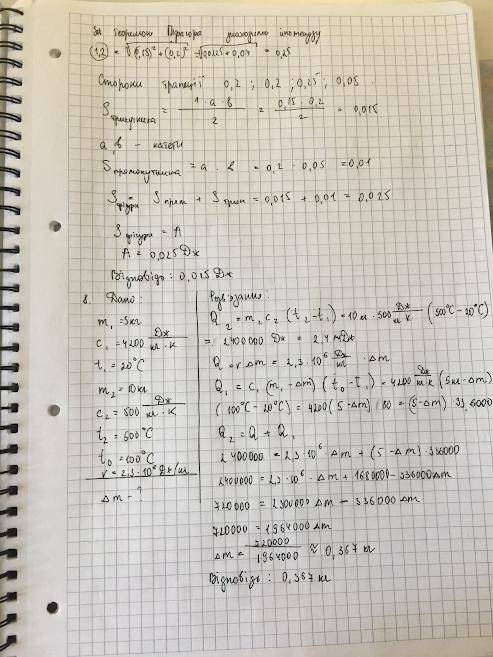 За теоремою Піфагора знаходимо гіпотенузу
(1,2) = √(0,15)² + (0,2)² = √0,0225 + 0,04 = 0,25
Сторони трапеції 0,2 ; 0,2 ; 0,25 ; 0,05 .
S трикутника = 1 · a · b / 2 = 0,15 · 0,2 / 2 = 0,015
a, b - катети
S прямокутника = a · b = 0,2 · 0,05 = 0,01
S фігури S прям + S трик = 0,015 + 0,01 = 0,025
S фігури = A
A = 0,025 Дж
Відповідь : 0,025 Дж
8. Дано :
m₁ = 5 кг
c₁ = 4200 Дж / кг · К
t₁ = 20°C
m₂ = 10 кг
c₂ = 500 Дж / кг · К
t₂ = 500°C
t₀ = 100°C
r = 2,3 · 10⁶ Дж/кг
Δm - ?
Розв'язання :
Q₂ = m₂ c₂ (t₂ - t₁) = 10 кг · 500 Дж / кг · К (500°C - 20°C)
= 2400000 Дж = 2,4 МДж
Q = r Δm = 2,3 · 10⁶ Дж / кг · Δm
Q₁ = c₁ (m₁ - Δm) (t₀ - t₁) = 4200 Дж / кг · К (5 кг - Δm)
(100°C - 20°C) = 4200 (5 - Δm) (80 = (5 - Δm) 336000
Q₂ = Q + Q₁
2400000 = 2,3 · 10⁶ · Δm + (5 - Δm) · 336000
2400000 = 2,3 · 10⁶ · Δm + 1680000 - 336000 Δm
720000 = 2300000 Δm - 336000 Δm
720000 = 1964000 Δm
Δm = 720000 / 1964000 ≈ 0,367 кг
Відповідь : 0,367 кг